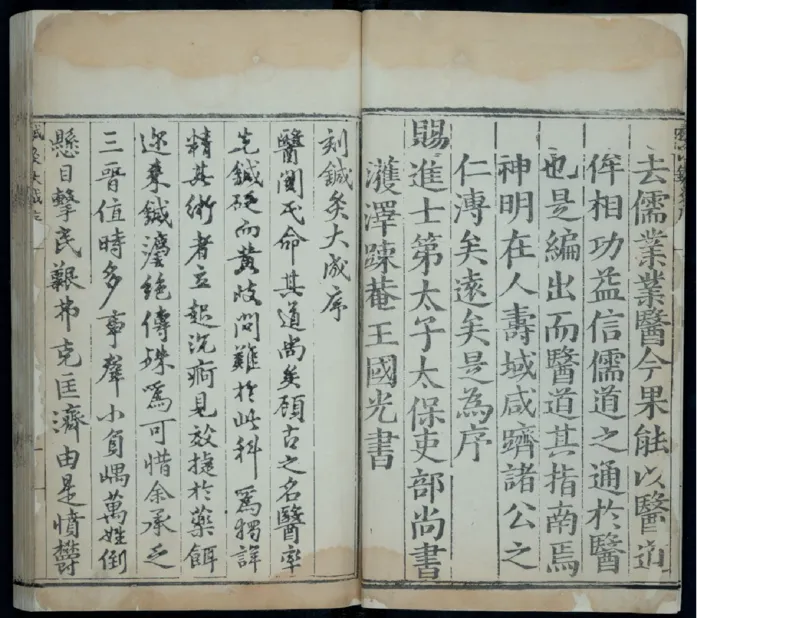 去儒業業醫今果能以醫道
侔相功益信儒道之通於醫
也是編出而醫道其指南焉
神明在人壽域咸躋諸公之
仁溥矣遠矣是為序
賜進士第太子太保吏部尚書
濩澤疎菴王國光書
刻鍼灸大成序
醫関民命其道尚矣顧古之名醫率
先鍼砭而黃岐問難於此科為獨詳
精其術者立起沉痾見效捷於藥餌
迩来鍼灋絕傳殊為可惜余承乏
三晉值時多事羣小負嵎萬姓倒
懸目擊民艱弗克匡濟由是憤鬱